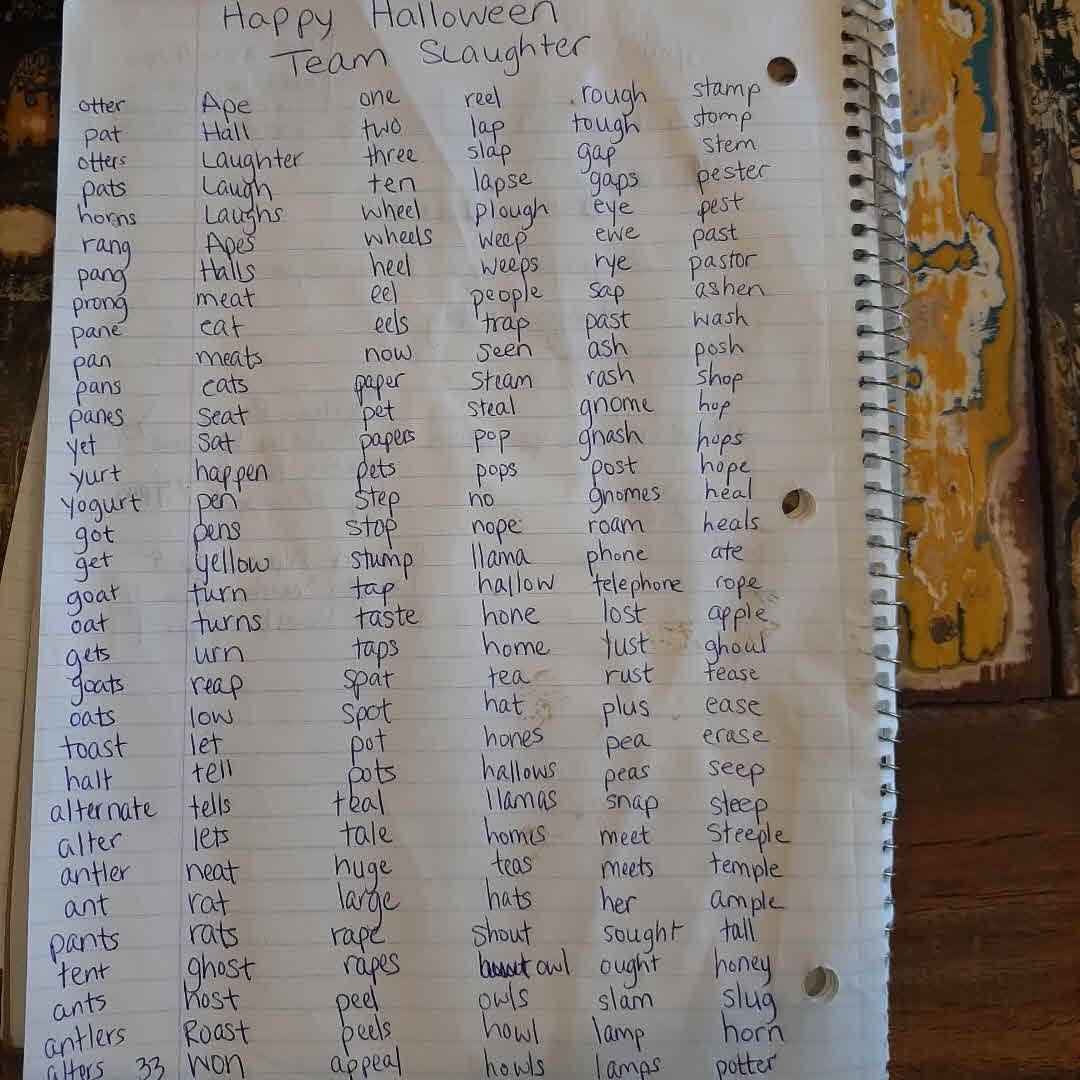 Happy Halloween
Team Slaughter
otter Ape one reel rough stamp
pat Hall two lap tough stomp
otters Laughter three slap gap stem
pats Laugh ten lapse gaps pester
horns Laughs wheel plough eye pest
rang Apes wheels weep ewe past
pang Halls heel weeps rye pastor
prong meat eel people sap ashen
pane eat eels trap past wash
pan meats now seen ash posh
pans eats paper steam rash shop
panes seat pet steal gnome hop
yet sat papers pop gnash hops
yurt happen pets pops post hope
yogurt pen step no gnomes heal
got pens stop nope roam heals
get yellow stump llama phone ate
goat turn tap hallow telephone rope
oat turns taste hone lost apple
gets urn taps home ghoul
goats reap spat tea rust tease
oats low spot hat plus ease
toast let pot hones pea erase
halt tell pots hallows peas seep
alternate tells teal llamas snap sleep
alter lets tale homes meet steeple
antler neat huge teas meets temple
ant rat large hats her ample
pants rats rape shout sought tall
tent ghost rapes owl ought honey
ants host peel owls slam slug
antlers Roast peels howl lamp horn
alters 33 won appeal howls lamps potter